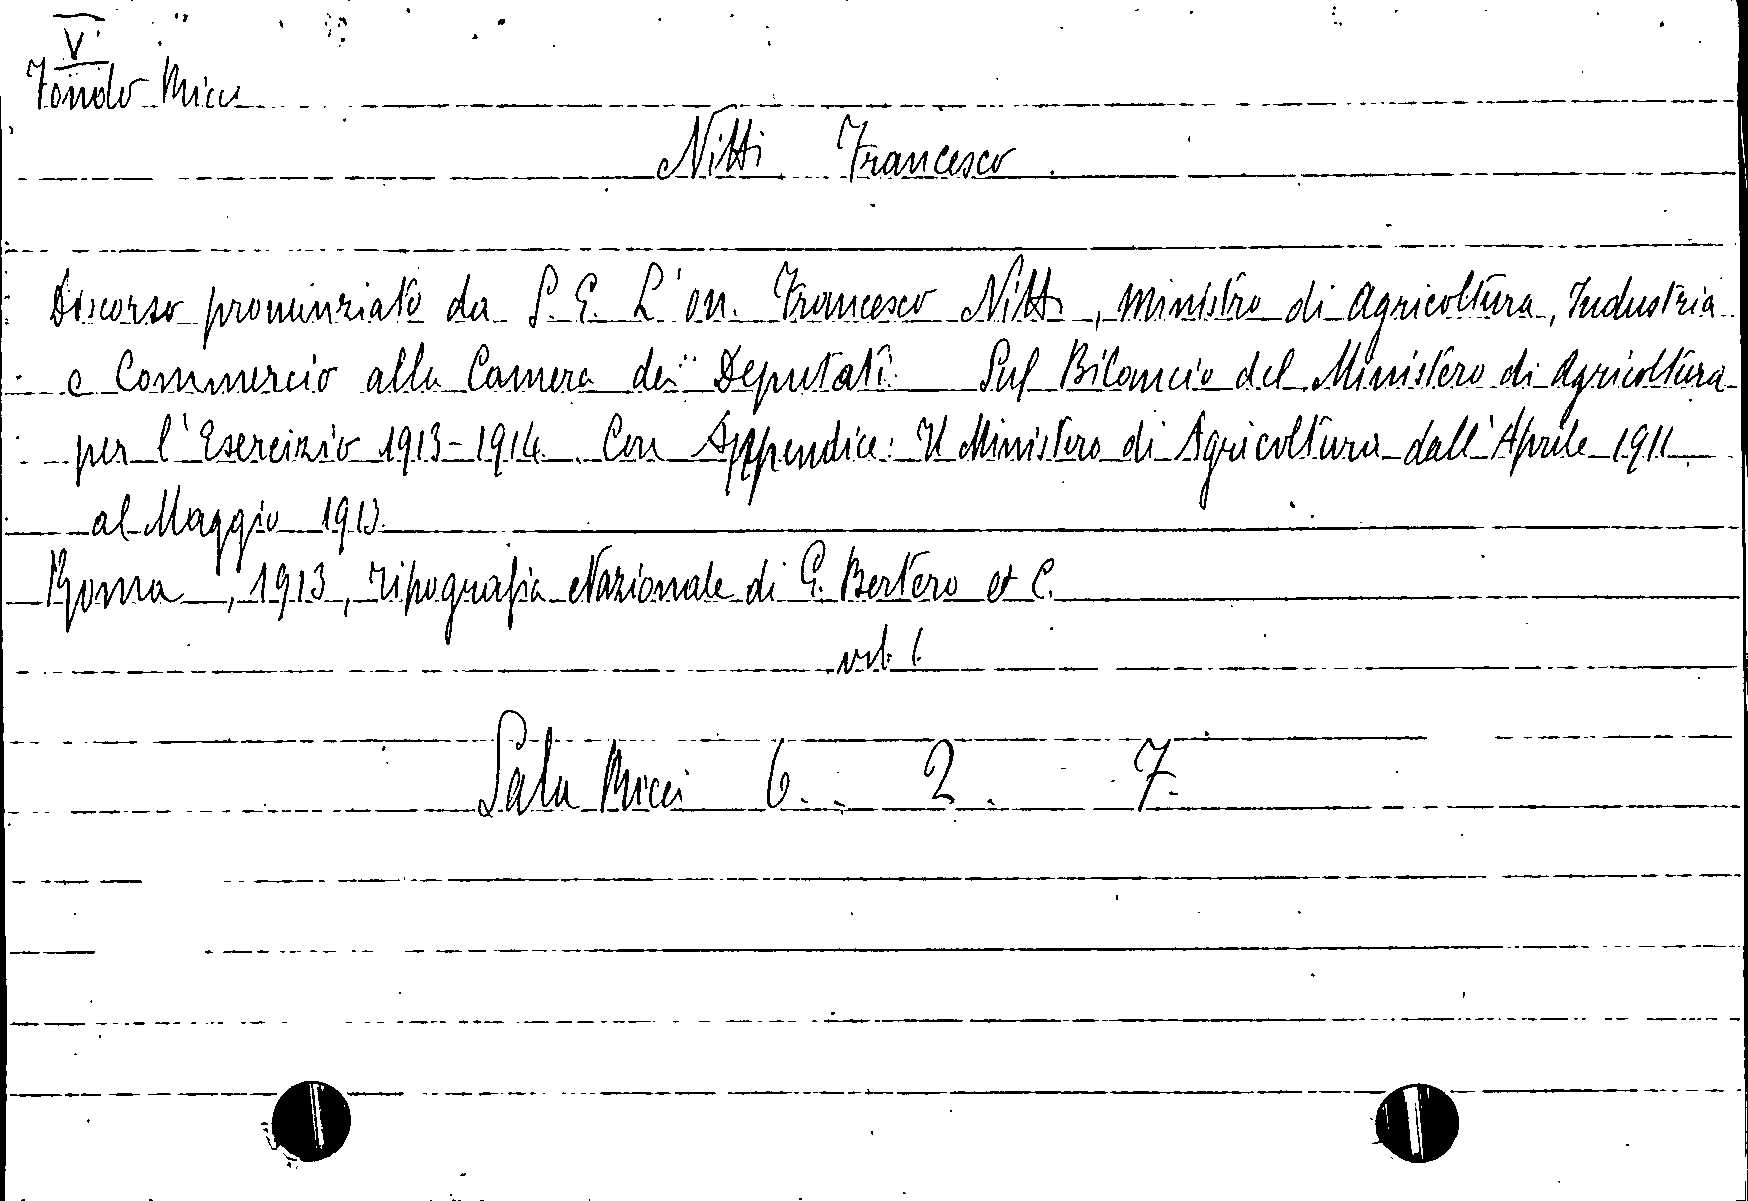 V
Fondo Ricci
Nitti Francesco
Discorso pronunziato da S. E. L'on. Francesco Nitti, Ministro di Agricoltura, Industria
e Commercio alla Camera dei Deputati Sul Bilancio del Ministero di Agricoltura
per l'Esercizio 1913-1914. Con Appendice: Il Ministero di Agricoltura dall'Aprile 1911
al Maggio 1913.
Roma, 1913, Tipografia Nazionale di G. Bertero et C.
vol. 1.
Sala Ricci 6. 2. 7.